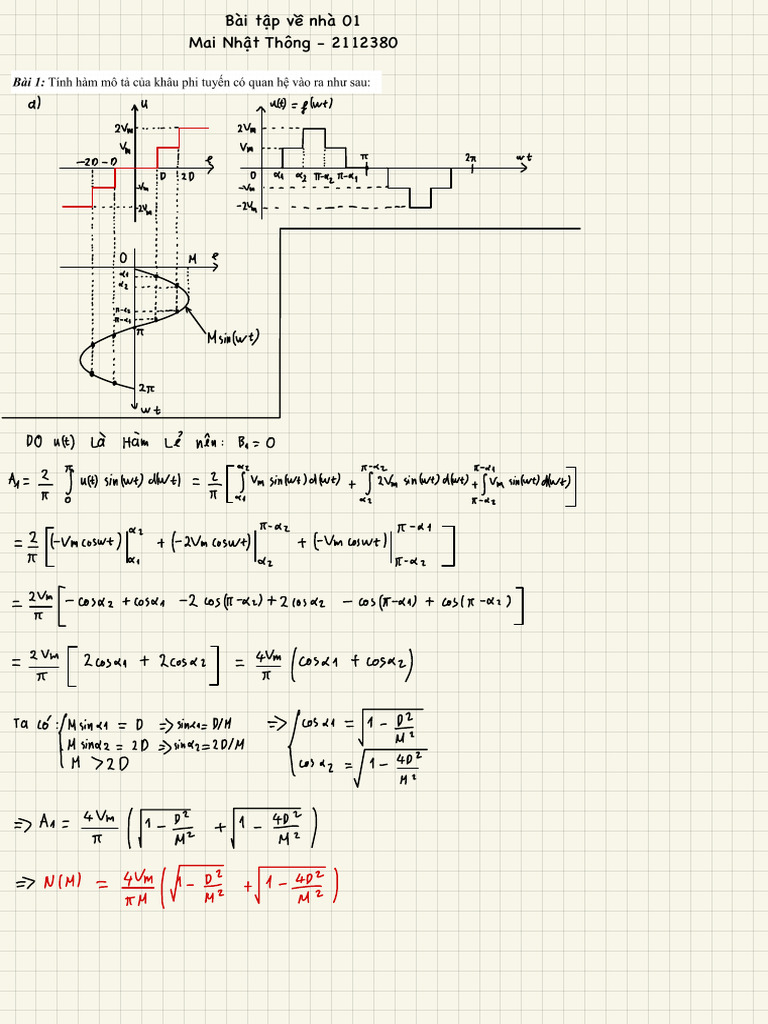 Bài tập về nhà 01
Mai Nhật Thông - 2112380
Bài 1: Tính hàm mô tả của khâu phi tuyến có quan hệ vào ra như sau:
a)
u
2Vm
Vm
-2D -D
e
D 2D
-Vm
-2Vm
u(t) = f(wt)
2Vm
Vm
0 α1 α2 π-α2 π-α1 π 2π wt
-Vm
-2Vm
0 M e
α1
α2
π-α2
π-α1
π
Msin(wt)
2π
wt
Do u(t) là hàm lẻ nên: B₁ = 0
A₁ = 2/π ∫₀^π u(t) sin(wt) d(wt) = 2/π [ ∫_{α1}^{α2} Vm sin(wt) d(wt) + ∫_{α2}^{π-α2} 2Vm sin(wt) d(wt) + ∫_{π-α2}^{π-α1} Vm sin(wt) d(wt) ]
= 2/π [ (-Vm coswt) |_{α1}^{α2} + (-2Vm coswt) |_{α2}^{π-α2} + (-Vm coswt) |_{π-α2}^{π-α1} ]
= 2Vm/π [ -cosα2 + cosα1 -2 cos(π-α2) + 2 cosα2 - cos(π-α1) + cos(π-α2) ]
= 2Vm/π [ 2cosα1 + 2cosα2 ] = 4Vm/π (cosα1 + cosα2)
Ta có: { Msinα1 = D => sinα1 = D/M => { cosα1 = √(1 - D²/M²)
Msinα2 = 2D => sinα2 = 2D/M
M > 2D
cosα2 = √(1 - 4D²/M²)
=> A₁ = 4Vm/π ( √(1 - D²/M²) + √(1 - 4D²/M²) )
=> N(M) = 4Vm/πM ( √(1 - D²/M²) + √(1 - 4D²/M²) )